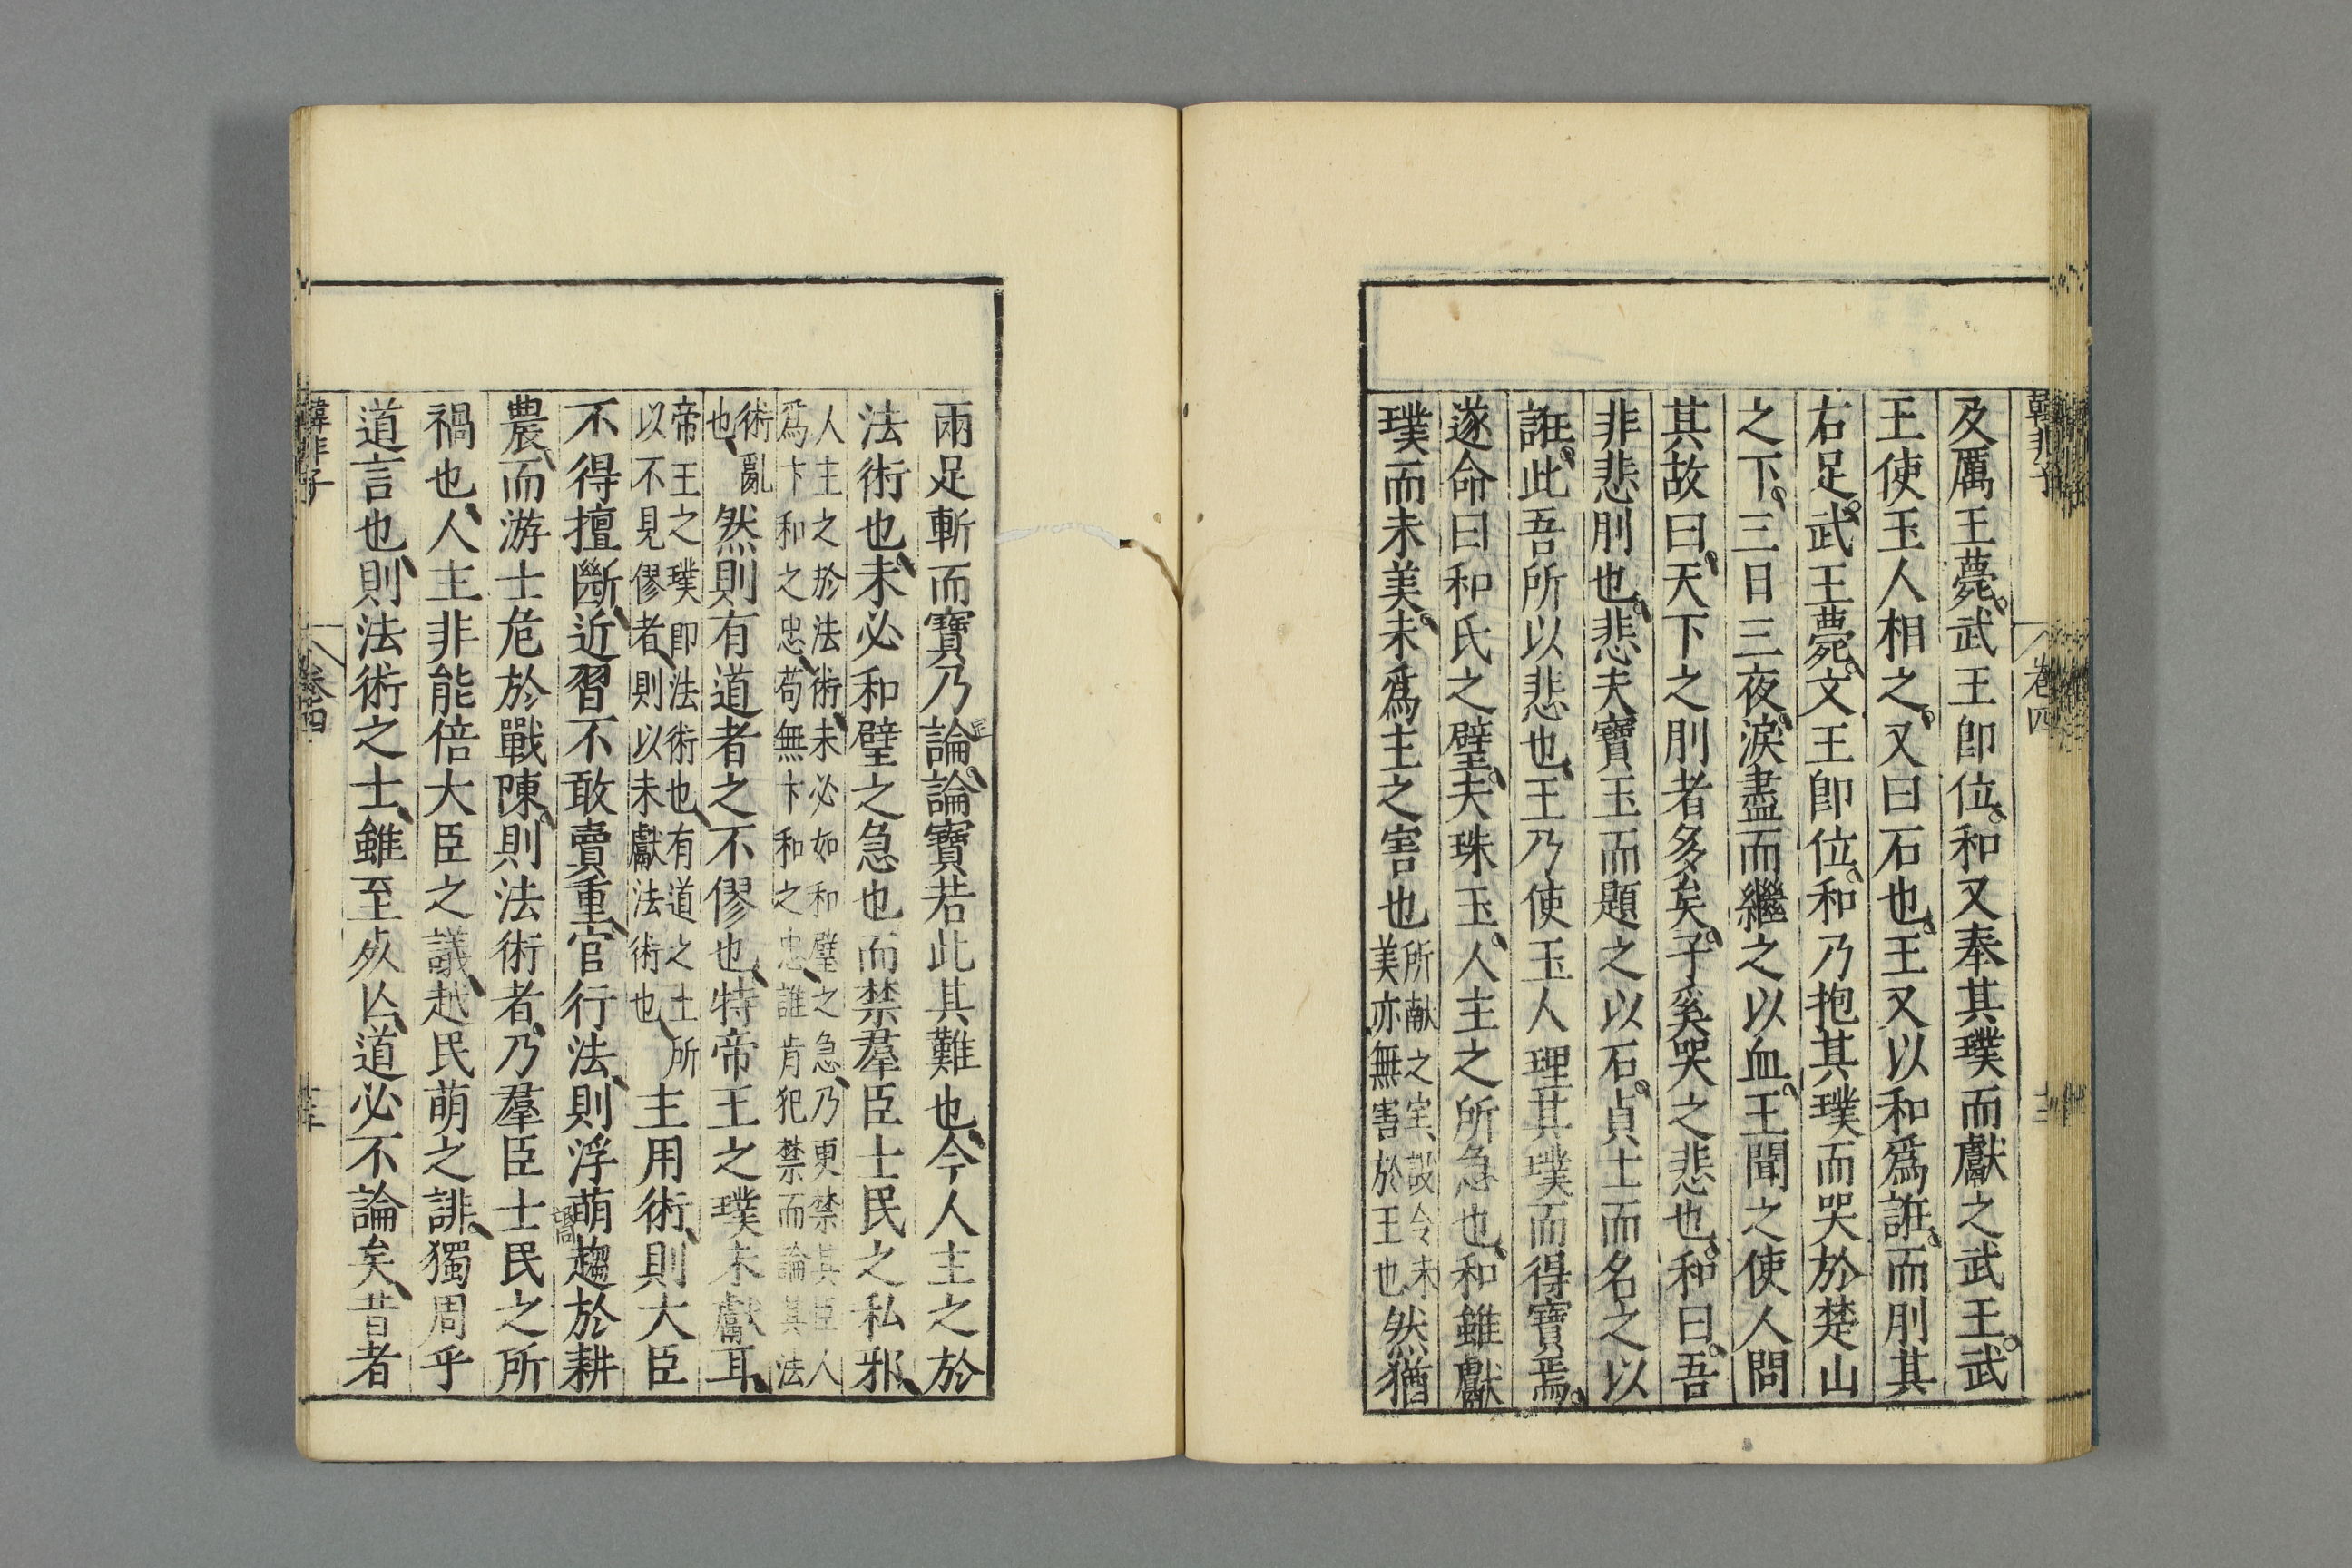 韓非子 卷四 十二
及厲王薨。武王卽位。和又奉其璞而獻之武王。武
王使玉人相之。又曰石也、王又以和爲誑。而刖其
右足。武王薨。文王卽位。和乃抱其璞而哭於楚山
之下。三日三夜、淚盡而繼之以血。王聞之使人問
其故曰、天下之刖者多矣。子奚哭之悲也。和曰。吾
非悲刖也。悲夫寶玉而題之以石。貞士而名之以
誑。此吾所以悲也、王乃使玉人理其璞而得寶焉。
遂命曰和氏之璧。夫珠玉。人主之所急也、和雖獻
璞而未美。未爲主之害也所献之宝、設令未美亦、無害於王也然猶
兩足斬而寶乃論。論寶若此其難也、今人主之於
法術也、未必和璧之急也而禁羣臣士民之私邪、
人主之於法術、未必如和璧之急、乃更禁其臣人
爲卞和之忠、苟無卞和之忠、誰肯犯禁而論其法
術亂也、然則有道者之不僇也、特帝王之璞未獻耳、
帝王之璞卽法術也、有道之士所以不見僇者、則以未獻法術也、主用術、則大臣
不得擅斷、近習不敢賣重、官行法、則浮萌趨於耕
農、而游士危於戰陳、則法術者、乃羣臣士民之所
禍也、人主非能倍大臣之議、越民萌之誹、獨周乎
道言也、則法術之士、雖至死亾、道必不論矣、昔者
韓非子 卷四